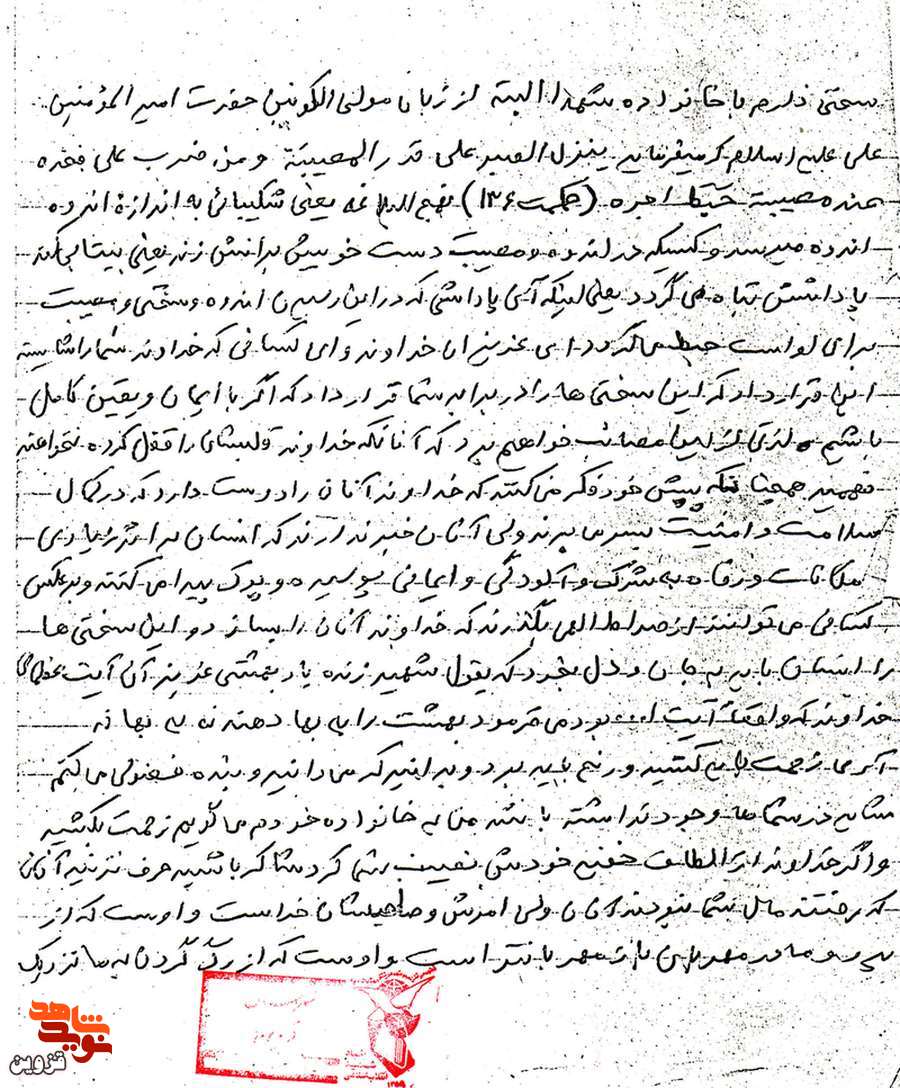 سخنی دارم با خانواده شهدا البته از زبان مولی الکونین حضرت امیر المؤمنین
علی علیه السلام که میفرماید ینزل الصبر علی قدر المصیبة و من ضرب علی فخذه
عنده مصیبة حبط اجره (حکمت ۱۳۶) نهج البلاغه یعنی شکیبائی به اندازه اندوه
اندوه میرسد و کسیکه در اندوه و مصیبت دست خویش برانش زند یعنی بیتابی کند
پاداشش تباه می گردد یعنی اینکه آن پاداشی که در این رسیدن اندوه و سختی و مصیبت
برای او است حبط می گردد ای عزیزان خداوند و ای کسانی که خداوند شما را شایسته
آنها قرار داد که این سختی ها را در برابر شما قرار داد که اگر با ایمان و یقین کامل
باشیم لذتی از این مصائب خواهیم برد که آنانکه خداوند قلبشان را قفل کرده نخواهند
فهمید همچنانکه پیش خود فکر می کنند که خداوند آنان را دوست دارد که در کمال
سلامت و امنیت بسر می برند ولی آنان خبر ندارند که انسان بر اثر زیادی
امکانات و رفاه به شرک و آلودگی و ایمانی پوسیده و پوک پیدا می کنند و برعکس
کسانی می توانند از صراط الهی بگذرند که خداوند آنان را بسازد و این سختی ها
را انسان باید به جان و دل بخرد که بقول شهید زنده یاد بهشتی عزیز آن آیت عظمای
خداوند که واقعاً آیت ا... بود می فرمود بهشت را به بها دهند نه به بهانه
آری زحمت باید کشید و رنج باید برد و بدانید که می دانید و بنده فضولی می کنم
شاید در شماها وجود نداشته باشد من به خانواده خودم می گویم زحمت بکشید
و اگر خداوند از الطاف خفیه خودش نصیب شما کرد شاکر باشید حرف نزنید آنان
که رفتند مال شما نبودند آنان ولی امرش و صاحبشان خداست و اوست که از
پدر و مادر مهربان باز مهربانتر است و اوست که از رگ گردن به ما نزدیک
نوید شاهد
قزوین